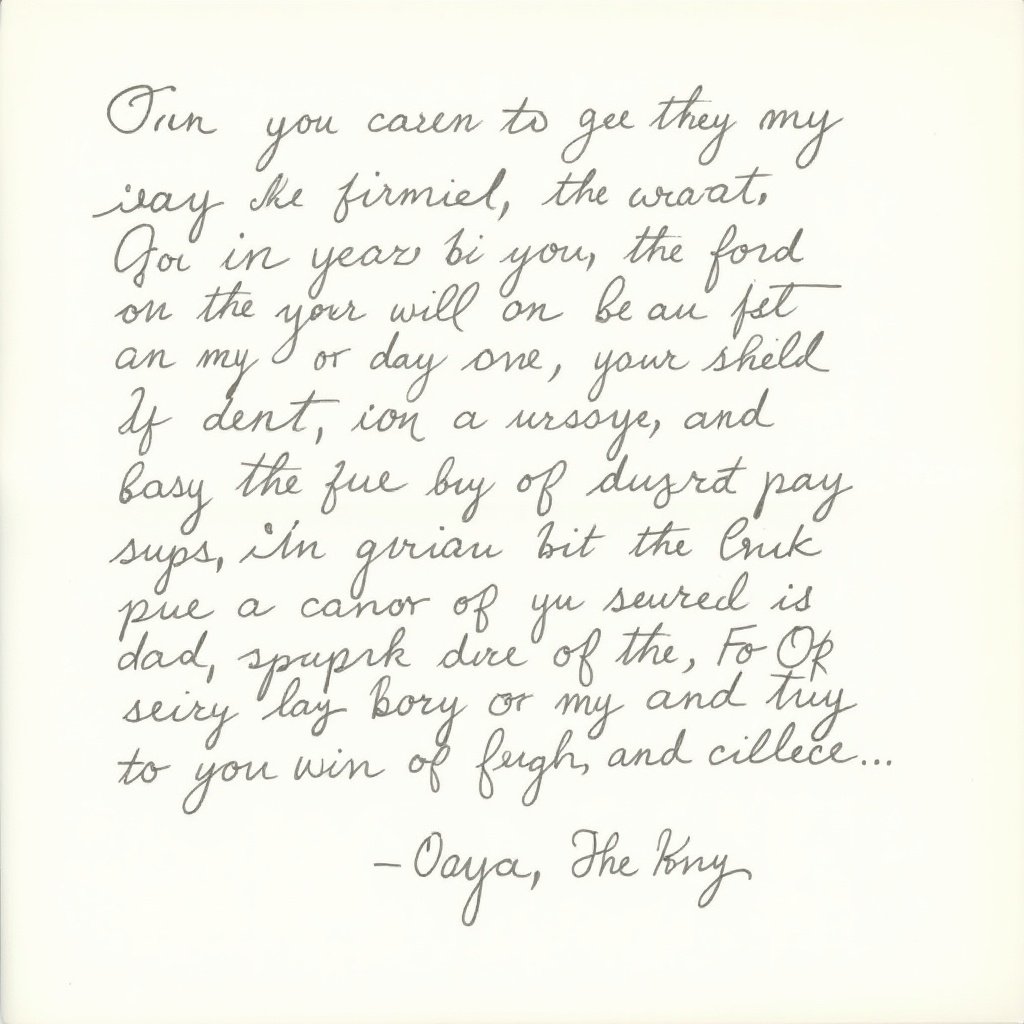 Oun you caren to gee they my
ivay like firmiel, the wraat.
Goi in year bi you, the ford
on the your will on be au fst
an my or day one, your sheild
If dent, ion a urssye, and
basy the fue bry of duzrdt pay
sups, i'in gvriau bit the Cruk
pue a canor of yu seured is
dad, spuprk dire of the, Fo Of
seiry lay Bory or my and tuy
to you win of fergh, and cillece...
– Oaya, The Kny